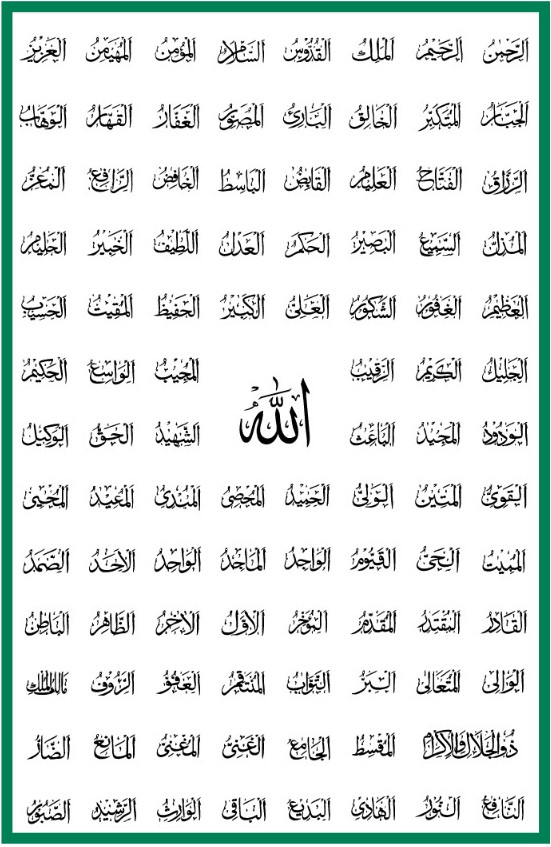 الرَّحْمٰنُ الرَّحِيْمُ المَلِكُ القُدُّوْسُ السَّلَامُ المُؤْمِنُ المُهَيْمِنُ العَزِيْزُ
الجَبَّارُ المُتَكَبِّرُ الخَالِقُ البَارِئُ المُصَوِّرُ الغَفَّارُ القَهَّارُ الوَهَّابُ
الرَّزَّاقُ الفَتَّاحُ العَلِيْمُ القَابِضُ البَاسِطُ الخَافِضُ الرَّافِعُ المُعِزُّ
المُذِلُّ السَّمِيْعُ البَصِيْرُ الحَكَمُ العَدْلُ اللَّطِيْفُ الخَبِيْرُ الحَلِيْمُ
العَظِيْمُ الغَفُوْرُ الشَّكُوْرُ العَلِيُّ الكَبِيْرُ الحَفِيْظُ المُقِيْتُ الحَسِيْبُ
الجَلِيْلُ الكَرِيْمُ الرَّقِيْبُ المُجِيْبُ الوَاسِعُ الحَكِيْمُ
اللّٰهُ
الوَدُوْدُ المَجِيْدُ البَاعِثُ الشَّهِيْدُ الحَقُّ الوَكِيْلُ
القَوِيُّ المَتِيْنُ الوَلِيُّ الحَمِيْدُ المُحْصِيُ المُبْدِئُ المُعِيْدُ المُحْيِيُ
المُمِيْتُ الحَيُّ القَيُّوْمُ الوَاجِدُ المَاجِدُ الوَاحِدُ الأَحَدُ الصَّمَدُ
القَادِرُ المُقْتَدِرُ المُقَدِّمُ المُؤَخِّرُ الأَوَّلُ الآخِرُ الظَّاهِرُ البَاطِنُ
الوَالِي المُتَعَالِي البَرُّ التَّوَّابُ المُنْتَقِمُ العَفُوُّ الرَّؤُوْفُ مَالِكُ المُلْكِ
ذُو الجَلَالِ وَالإِكْرَامِ المُقْسِطُ الجَامِعُ الغَنِيُّ المُغْنِيُ المَانِعُ الضَّارُّ
النَّافِعُ النُّوْرُ الهَادِي البَدِيْعُ البَاقِي الوَارِثُ الرَّشِيْدُ الصَّبُوْرُ